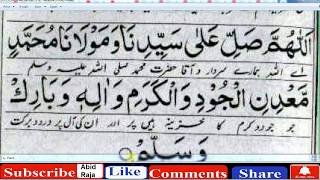 اَللّٰهُمَّ صَلِّ عَلٰى سَيِّدِنَا وَمَوْلَانَا مُحَمَّدٍ
اے اللہ ہمارے سردار و آقا حضرت محمد صلی اللہ علیہ وسلم
مَّعْدِنِ الْجُوْدِ وَالْكَرَمِ وَاٰلِهٖ وَبَارِكْ
جو جود و کرم کا خزینہ ہیں پر اور ان کی آل پر درود برکت
وَسَلِّمْ
Subscribe Abid Raja Like Comments Share